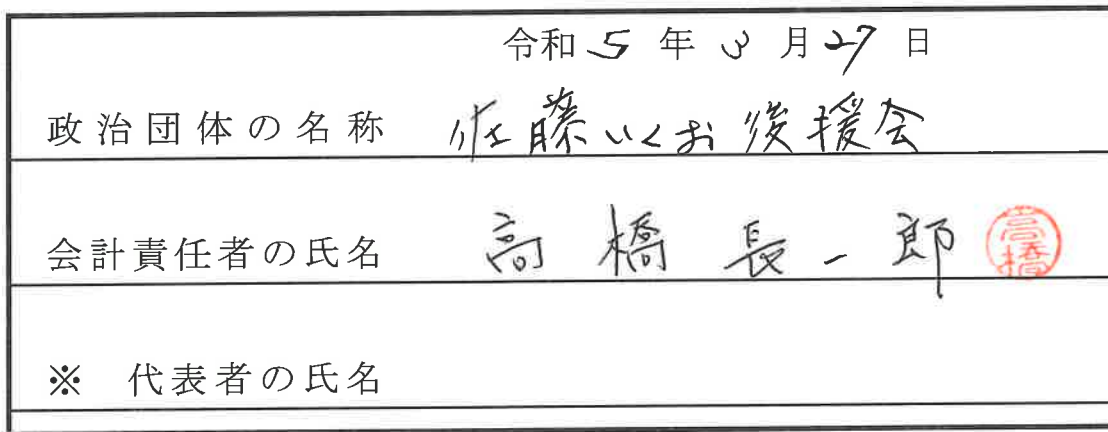 令和5年3月27日
政治団体の名称 佐藤いくお後援会
会計責任者の氏名 高橋長一郎 高橋
※ 代表者の氏名